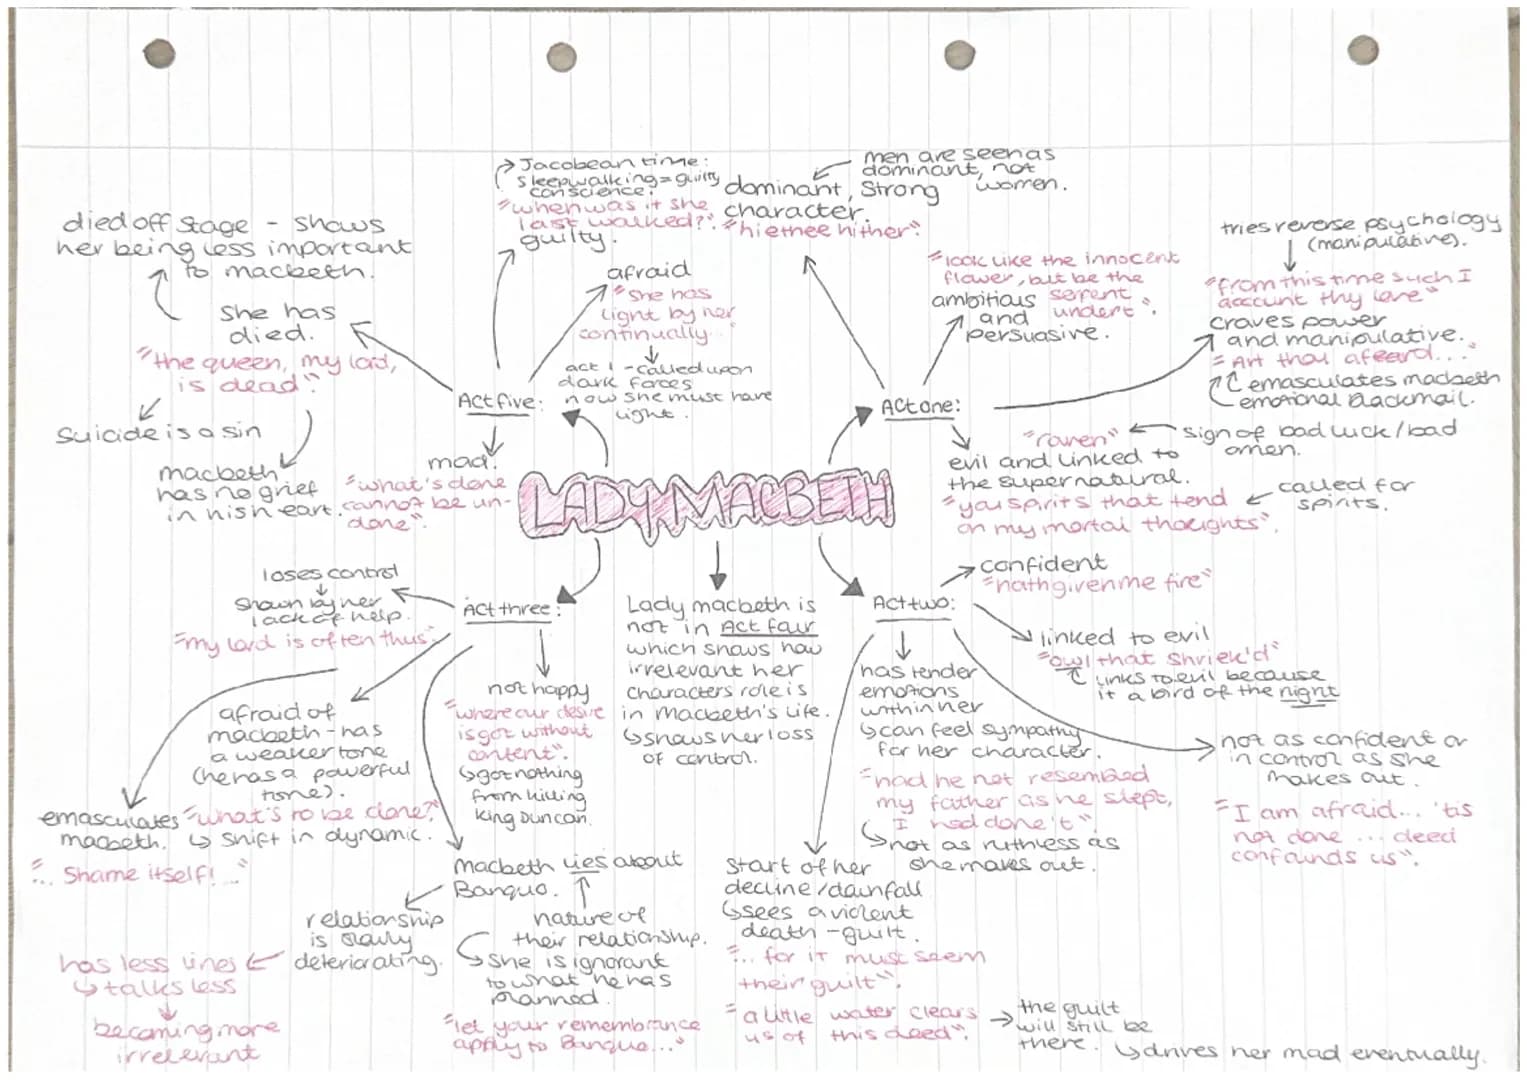 LADY MACBETH
Act one:
men are seen as
dominant, not
women.
dominant, strong
character.
"hie thee hither".
"look like the innocent
flower, but be the
serpent
undert".
ambitious
and
persuasive.
tries reverse psychology
(manipulative).
"from this time such I
account thy love"
craves power
and manipulative.
"Art thou afeard..."
emasculates macbeth
emotional blackmail.
"raven"
sign of bad luck/bad
omen.
evil and linked to
the supernatural.
"you spirits that tend
on my mortal thoughts".
called for
spirits.
Act two:
confident
"hath given me fire"
linked to evil
"owl that shriek'd"
links to evil because
it a bird of the night
not as confident or
in control as she
makes out.
"I am afraid... 'tis
not done ... deed
confounds us".
has tender
emotions
within her
can feel sympathy
for her character.
"had he not resembled
my father as he slept,
I had done't".
not as ruthless as
she makes out.
Start of her
decline/downfall
sees a violent
death - guilt.
"... for it must seem
their guilt".
"a little water clears
us of this deed".
the guilt
will still be
there.
drives her mad eventually.
Lady macbeth is
not in Act four
which shows how
irrelevant her
characters role is
in Macbeth's life.
shows her loss
of control.
Act three:
loses control
shown by her
lack of help.
"my lord is often thus".
not happy
"where our desire
is got without
content".
got nothing
from killing
king Duncan.
afraid of
macbeth - has
a weaker tone
(he has a powerful
tone).
"what's to be done?"
shift in dynamic.
emasculates
macbeth.
"... Shame itself!..."
Macbeth lies about
Banquo.
nature of
their relationship.
she is ignorant
to what he has
planned.
"let your remembrance
apply to Banquo..."
relationship
is slowly
deteriorating.
has less lines
talks less
becoming more
irrelevant
Act five:
Jacobean time:
sleepwalking = guilty
conscience.
"when was it she
last walked?".
guilty.
afraid
"she has
light by her
continually..."
act 1 - called upon
dark forces
now she must have
light.
mad.
"what's done
cannot be un-
done".
she has
died.
"the queen, my lord,
is dead".
died off stage - shows
her being less important
to macbeth.
suicide is a sin
macbeth
has no grief
in his heart.